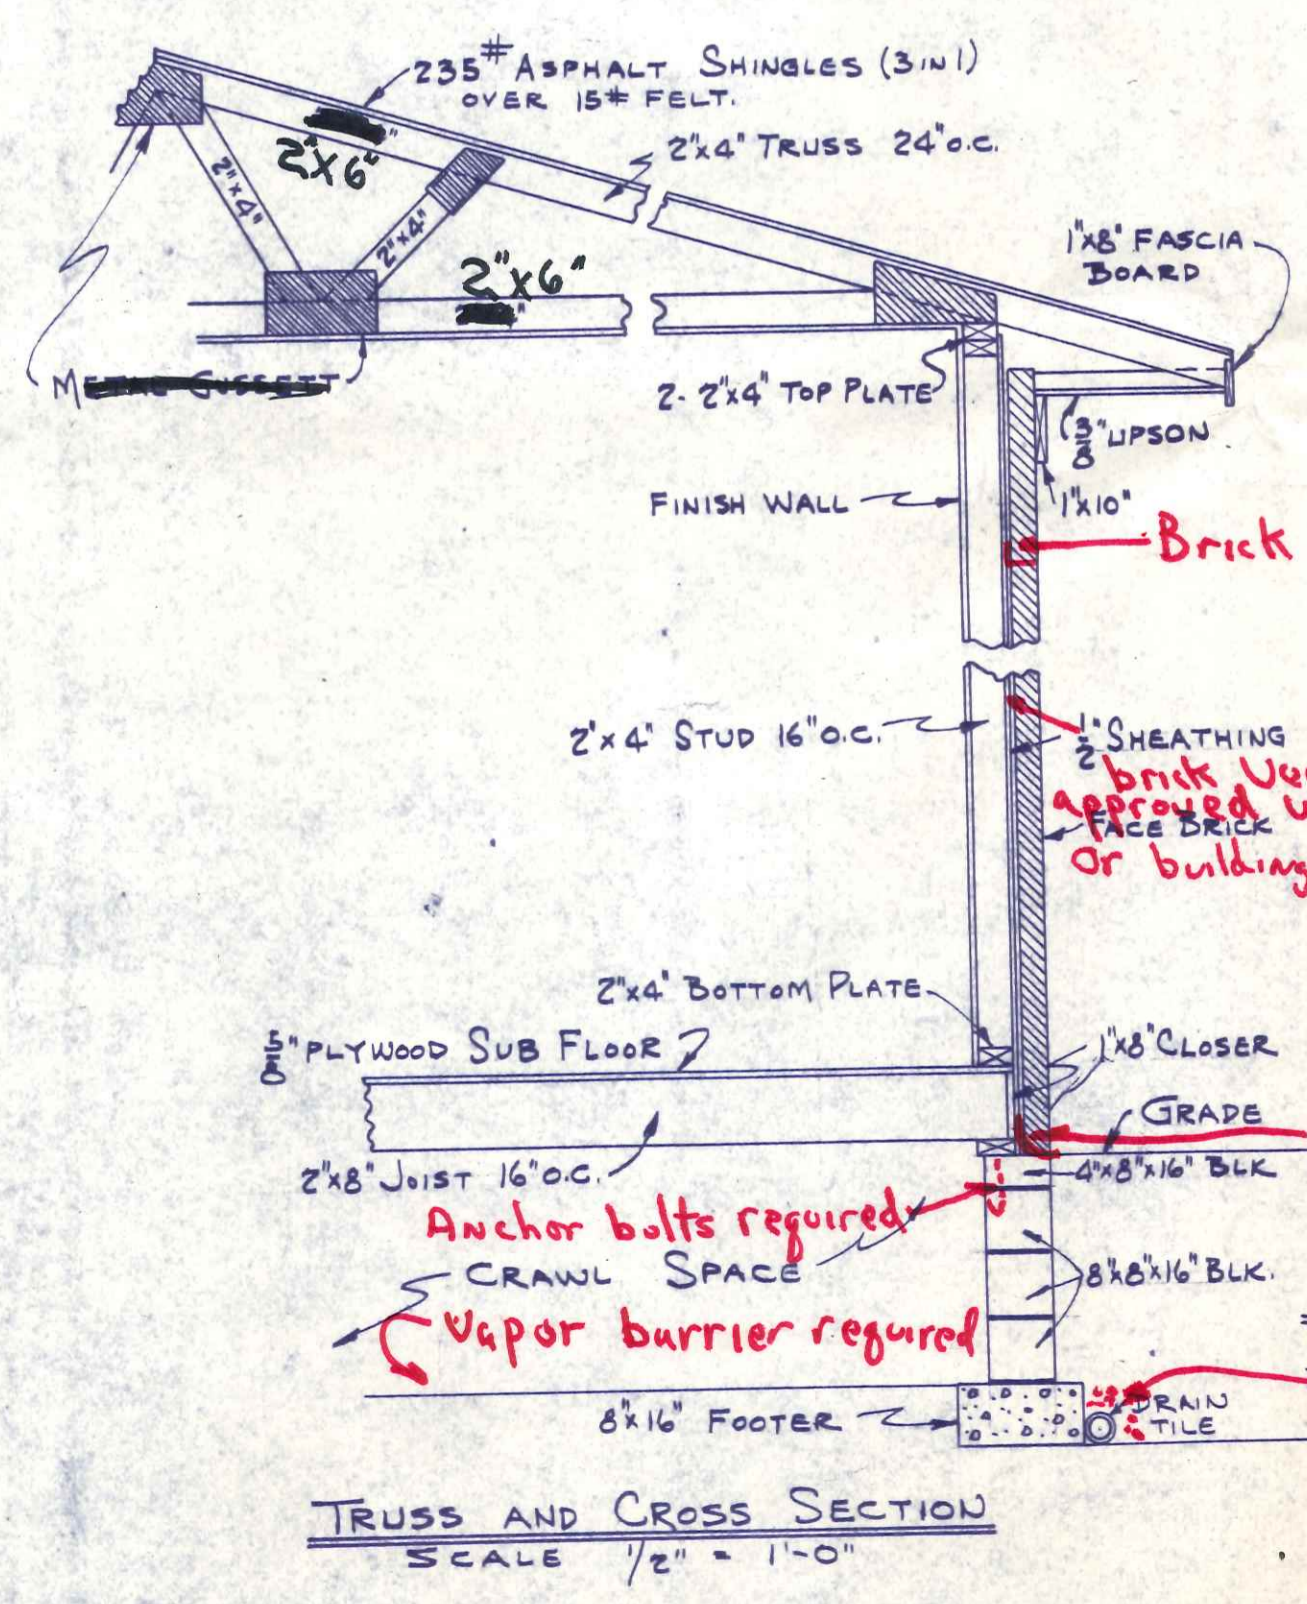 235# ASPHALT SHINGLES (3 IN 1)
OVER 15# FELT.
2"x4" TRUSS 24" O.C.
2"x6"
2"x4"
2"x4"
2"x6"
1"x8" FASCIA
BOARD
METAL GUSSETT
2- 2"x4" TOP PLATE
3/8" UPSON
1"x10"
FINISH WALL
Brick
2"x4" STUD 16" O.C.
1/2" SHEATHING
brick
approved
FACE BRICK
Or building
2"x4" BOTTOM PLATE
5/8" PLYWOOD SUB FLOOR
1"x8" CLOSER
GRADE
2"x8" JOIST 16" O.C.
4"x8"x16" BLK
Anchor bolts required
CRAWL SPACE
8"x8"x16" BLK.
Vapor barrier required
8"x16" FOOTER
DRAIN
TILE
TRUSS AND CROSS SECTION
SCALE 1/2" = 1'-0"